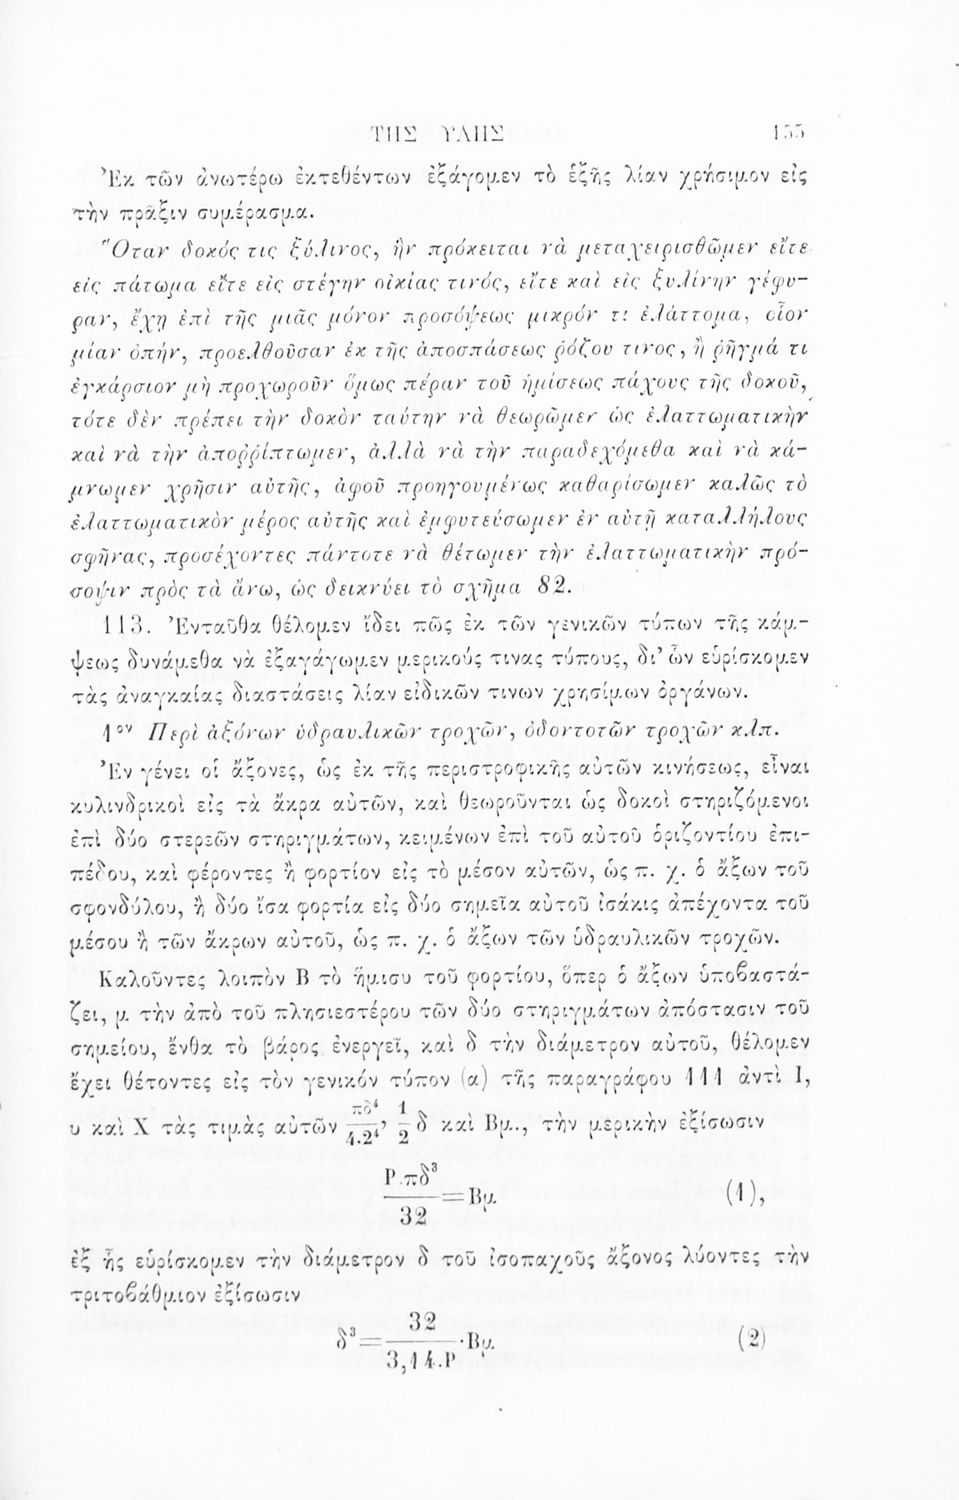 ΤΗΣ ΥΛΗΣ 155
Ἐκ τῶν ἀνωτέρω ἐκτεθέντων ἐξάγομεν τὸ ἑξῆς λίαν χρήσιμον εἰς
τὴν πρᾶξιν συμπέρασμα.
Ὅταν δοκός τις ξύλινος, ἣν πρόκειται νὰ μεταχειρισθῶμεν εἴτε
εἰς πάτωμα εἴτε εἰς στέγην οἰκίας τινός, εἴτε καὶ εἰς ξυλίνην γέφυ-
ραν, ἔχῃ ἐπὶ τῆς μιᾶς μόνον προσόψεως μικρόν τι ἐλάττομα, οἷον
μίαν ὀπήν, προελθοῦσαν ἐκ τῆς ἀποσπάσεως ῥόζου τινος, ἢ ῥῆγμά τι
ἐγκάρσιον μὴ προχωροῦν ὅμως πέραν τοῦ ἡμίσεως πάχους τῆς δοκοῦ,
τότε δὲν πρέπει τὴν δοκὸν ταύτην νὰ θεωρῶμεν ὡς ἐλαττωματικὴν
καὶ νὰ τὴν ἀποῤῥίπτωμεν, ἀλλὰ νὰ τὴν παραδεχόμεθα καὶ νὰ κά-
μνωμεν χρῆσιν αὐτῆς, ἀφοῦ προηγουμένως καθαρίσωμεν καλῶς τὸ
ἐλαττωματικὸν μέρος αὐτῆς καὶ ἐμφυτεύσωμεν ἐν αὐτῇ καταλλήλους
σφῆνας, προσέχοντες πάντοτε νὰ θέτωμεν τὴν ἐλαττωματικὴν πρό-
σοψιν πρὸς τὰ ἄνω, ὡς δεικνύει τὸ σχῆμα 82.
113. Ἐνταῦθα θέλομεν ἴδει πῶς ἐκ τῶν γενικῶν τύπων τῆς κάμ-
ψεως δυνάμεθα νὰ ἐξαγάγωμεν μερικούς τινας τύπους, δι' ὧν εὑρίσκομεν
τὰς ἀναγκαίας διαστάσεις λίαν εἰδικῶν τινων χρησίμων ὀργάνων.
1ον Περὶ ἀξόνων ὑδραυλικῶν τροχῶν, ὀδοντοτῶν τροχῶν κ.λπ.
Ἐν γένει οἱ ἄξονες, ὡς ἐκ τῆς περιστροφικῆς αὐτῶν κινήσεως, εἶναι
κυλινδρικοὶ εἰς τὰ ἄκρα αὐτῶν, καὶ θεωροῦνται ὡς δοκοὶ στηριζόμενοι
ἐπὶ δύο στερεῶν στηριγμάτων, κειμένων ἐπὶ τοῦ αὐτοῦ ὁριζοντίου ἐπι-
πέδου, καὶ φέροντες ἢ φορτίον εἰς τὸ μέσον αὐτῶν, ὡς π. χ. ὁ ἄξων τοῦ
σφονδύλου, ἢ δύο ἴσα φορτία εἰς δύο σημεῖα αὐτοῦ ἰσάκις ἀπέχοντα τοῦ
μέσου ἢ τῶν ἄκρων αὐτοῦ, ὡς π. χ. ὁ ἄξων τῶν ὑδραυλικῶν τροχῶν.
Καλοῦντες λοιπὸν Β τὸ ἥμισυ τοῦ φορτίου, ὅπερ ὁ ἄξων ὑποβαστά-
ζει, μ τὴν ἀπὸ τοῦ πλησιεστέρου τῶν δύο στηριγμάτων ἀπόστασιν τοῦ
σημείου, ἔνθα τὸ βάρος ἐνεργεῖ, καὶ δ τὴν διάμετρον αὐτοῦ, θέλομεν
ἔχει θέτοντες εἰς τὸν γενικόν τύπον (α) τῆς παραγράφου 111 ἀντὶ Ι,
υ καὶ Χ τὰς τιμὰς αὐτῶν πδ⁴/4.2⁴, 1/2 δ καὶ Βμ., τὴν μερικὴν ἐξίσωσιν
Ρ.πδ³/32 = Βμ (1),
ἐξ ἧς εὑρίσκομεν τὴν διάμετρον δ τοῦ ἰσοπαχοῦς ἄξονος λύοντες τὴν
τριτοβάθμιον ἐξίσωσιν
δ³ = 32/3,14.Ρ · Βμ (2)